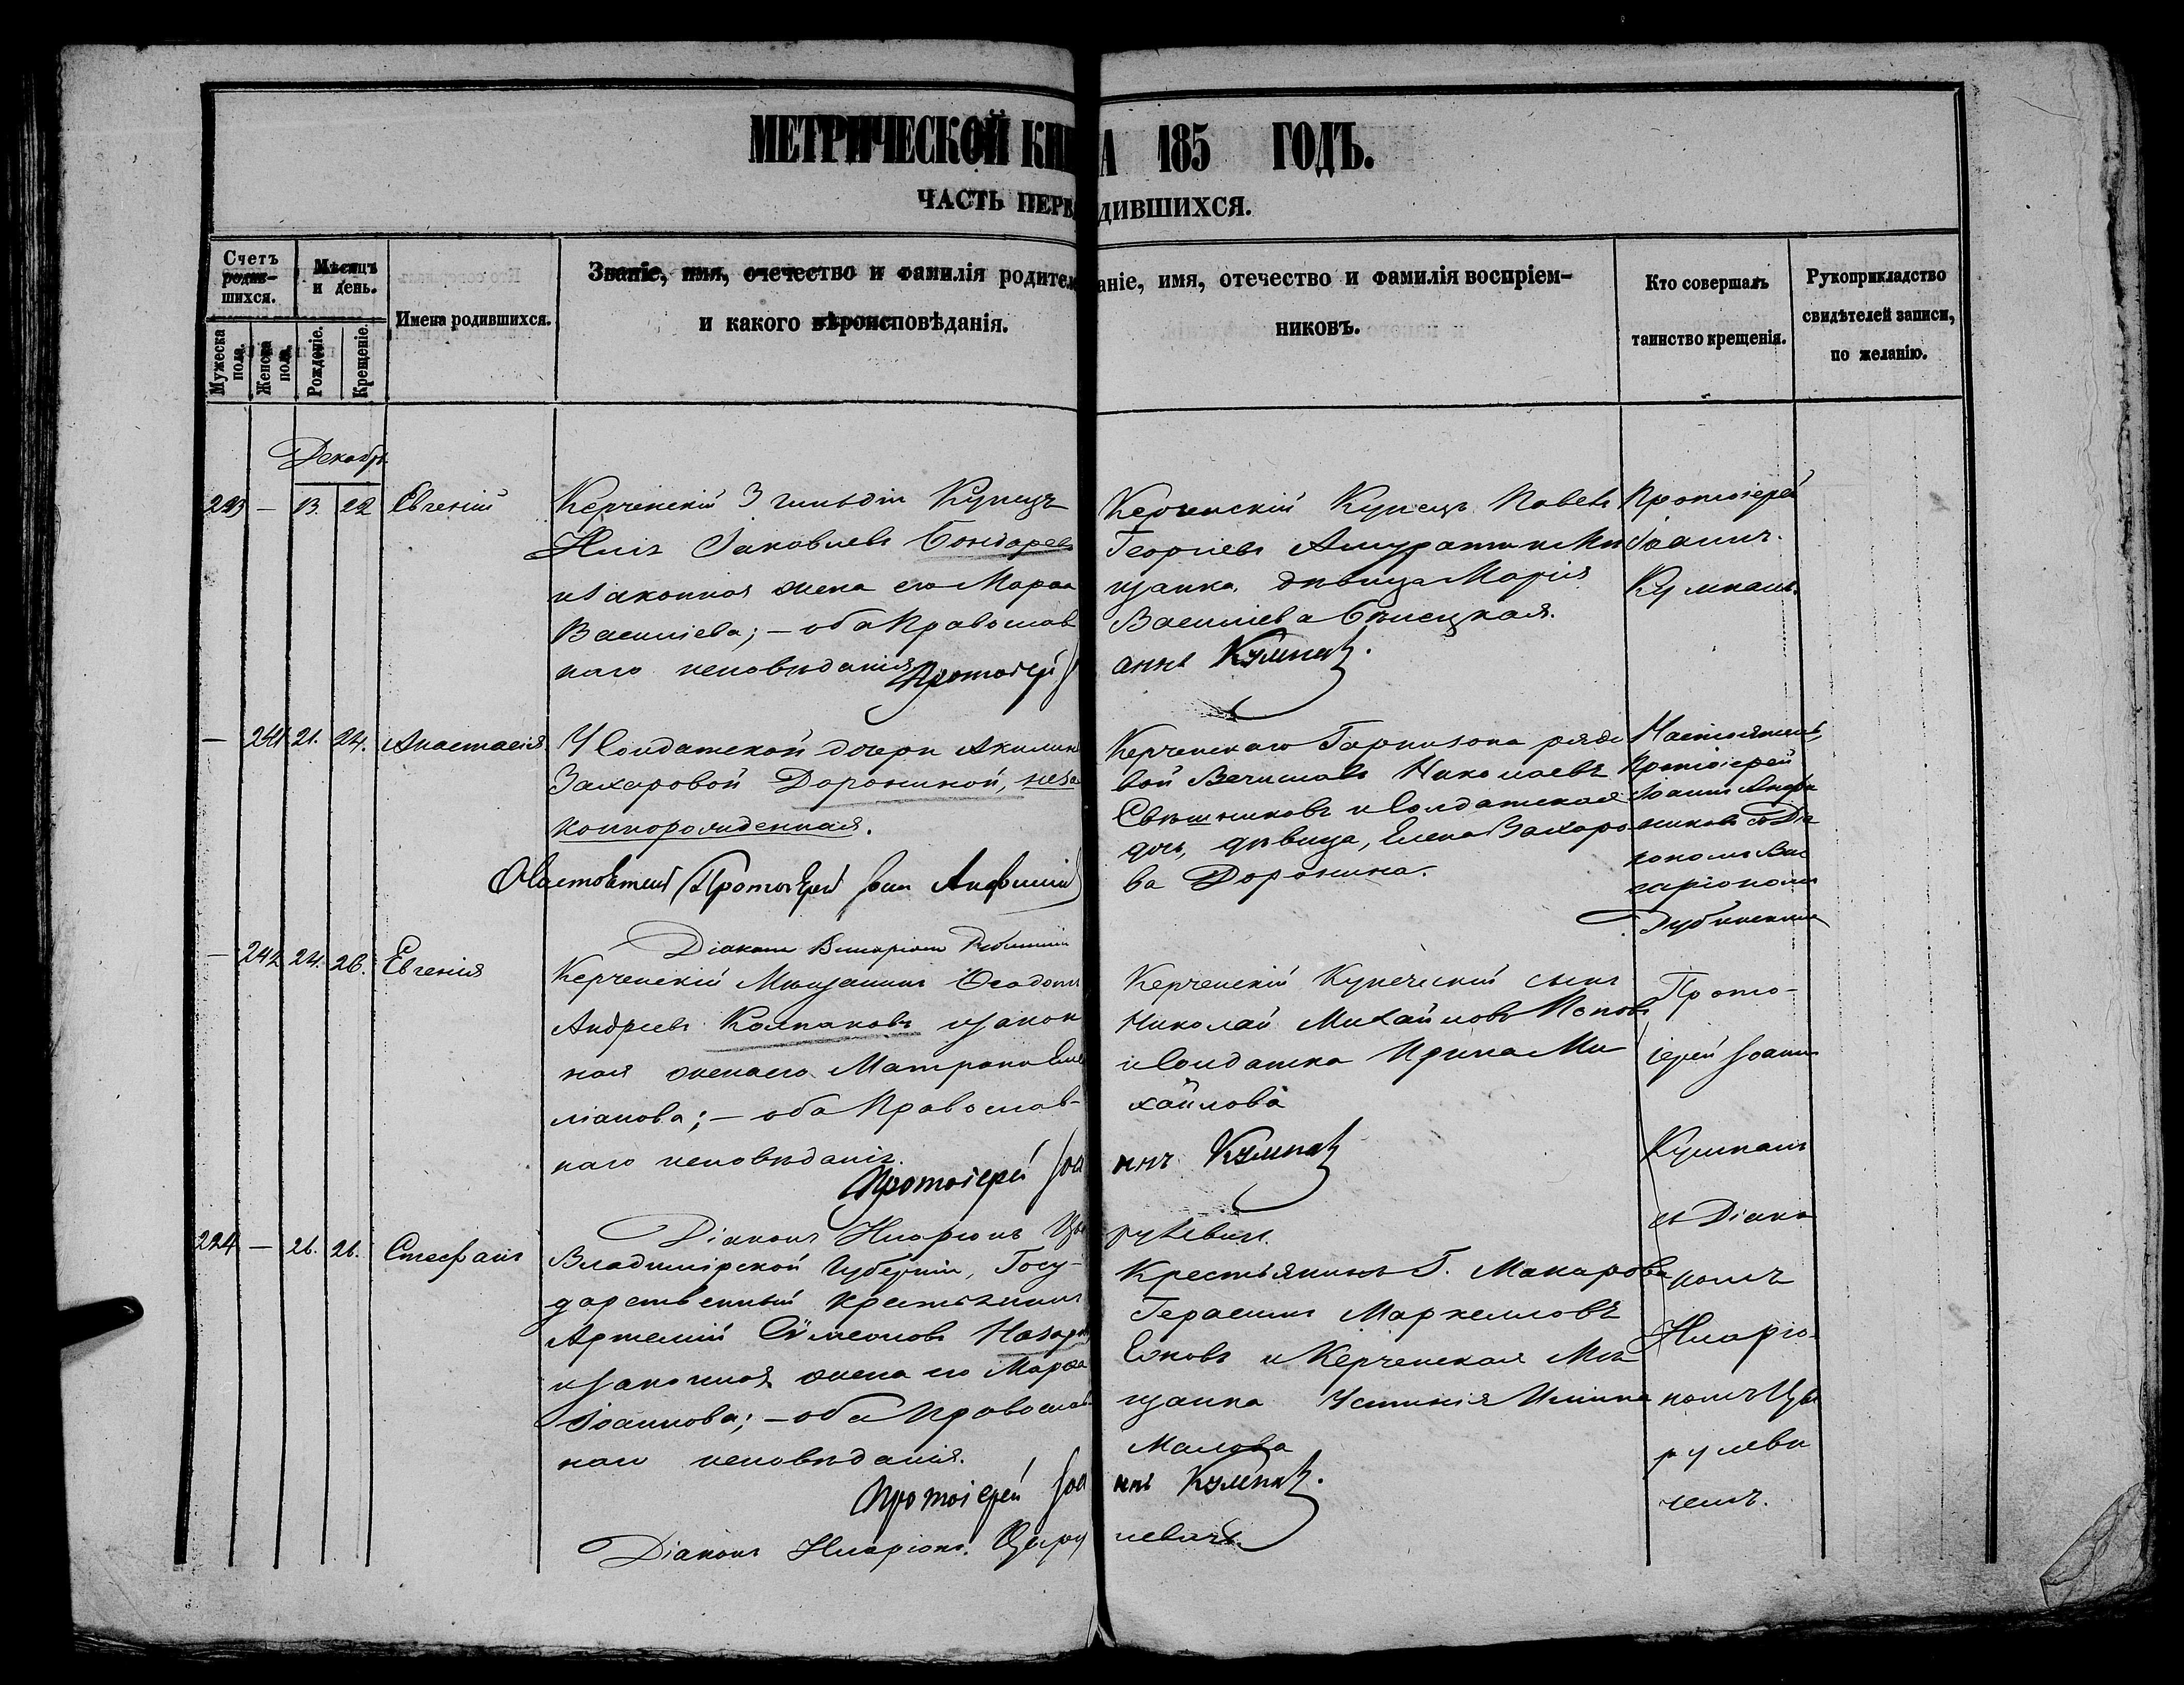 МЕТРИЧЕСКОЙ КНИ А 185 ГОДЪ.
ЧАСТЬ ПЕРВ ДИВШИХСЯ.
Счетъ родив-шихся.
Мужеска пола.
Женска пола.
Мѣсяцъ и день.
Рожденіе.
Крещеніе.
Имена родившихся.
Званіе, имя, очечество и фамилія родител
и какого вѣроисповѣданія.
аніе, имя, отечество и фамилія воспріем-
никовъ.
Кто совершалъ
таинство крещенія.
Рукоприкладство
свидѣтелей записи,
по желанію.
Декабрь
223 — 13. 22 Евгеній
Керченскій 3 гильдіи Купецъ
Илія Іаковлевъ Бондаревъ
и законная жена его Марѳа
Василіева; — оба Православ
наго исповѣданія
Протоіерей І
Керченскій Купецъ Павелъ
Георгіевъ Амуратъ и Мѣ
щанка дѣвица Марія
Василіева Бѣлецкая.
аннъ Кумпанъ.
Протоіерей
Іоаннъ
Кумпанъ.
— 241 21. 24. Анастасія
У Солдатской дочери Акилины
Захаровой Дорониной, неза
коннорожденная.
Настоятель Протоіерей Іоан
Діаконъ Виссаріонъ Дубинскій
Керченскаго Гарнизона рядо
вой Вячеславъ Николаевъ
Свѣшниковъ и Солдатская
дочь, дѣвица, Елена Захаро
ва Доронина.
Настоятель
Протоіерей
Іоаннъ
никовъ съ Діа
кономъ Вис
саріономъ
Дубинскимъ
— 242 24. 26. Евгенія
Керченскій Мѣщанинъ Ѳеодотъ
Андреевъ Колпаковъ и закон
ная жена его Матрона Еме
ліанова; — оба Православ-
наго исповѣданія.
Протоіерей Іоа
Діаконъ Иларіонъ Цы
Керченскій Купеческій сынъ
Николай Михайловъ Поповъ
и Солдатка Ирина Ми
хайлова
ннъ Кумпанъ
рулевичъ.
Прото-
іерей Іоаннъ
Кумпанъ
съ Діако
номъ
Иларіо-
номъ Цы
рулеви
чемъ.
224 — 26. 26. Стефанъ
Владимірской Губерніи, Госу-
дарственный крестьянинъ
Артемій Сѵмеоновъ Назаро
и законная жена его Марѳа
Іоаннова; — оба Православ
наго исповѣданія.
Протоіерей Іоа
Діаконъ Иларіонъ Цыру
Крестьянинъ Г. Макарова
Герасимъ Маркелловъ
Ежовъ и Керченская Мѣ
щанка Устинія
Малова
ннъ Кумпанъ.
левичъ.